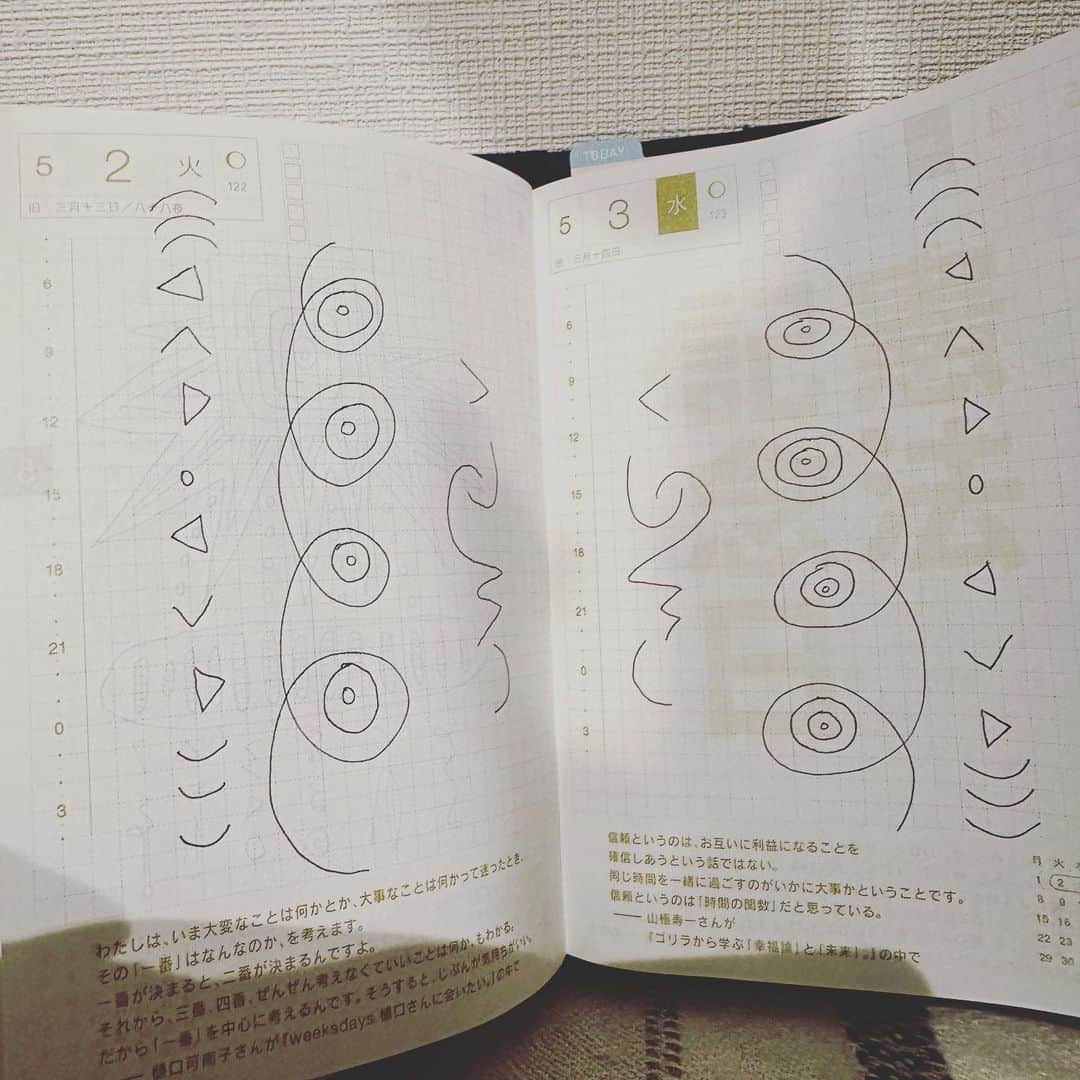 5 2 火
122
旧 三月十三日／八十八夜
6
9
12
15
18
21
0
3
わたしは、いま大変なことは何かとか、大事なことは何かって迷ったとき、
その「一番」はなんなのか、を考えます。
一番が決まると、二番が決まるんですよ。
それから、三番、四番、ぜんぜん考えなくていいことは何か、もわかる。
だから「一番」を中心に考えるんです。そうすると、じぶんが気持ちがいい。
—— 樋口可南子さんが『weeksdays 樋口さんに会いたい。』の中で
TODAY
5 3 水
123
旧 三月十四日
6
9
12
15
18
21
0
3
信頼というのは、お互いに利益になることを
確信しあうという話ではない。
同じ時間を一緒に過ごすのがいかに大事かということです。
信頼というのは「時間の関数」だと思っている。
—— 山極寿一さんが
『ゴリラから学ぶ「幸福論」と「未来」。』の中で
月 火
1 2
8 9
15 16
22 23
29 30